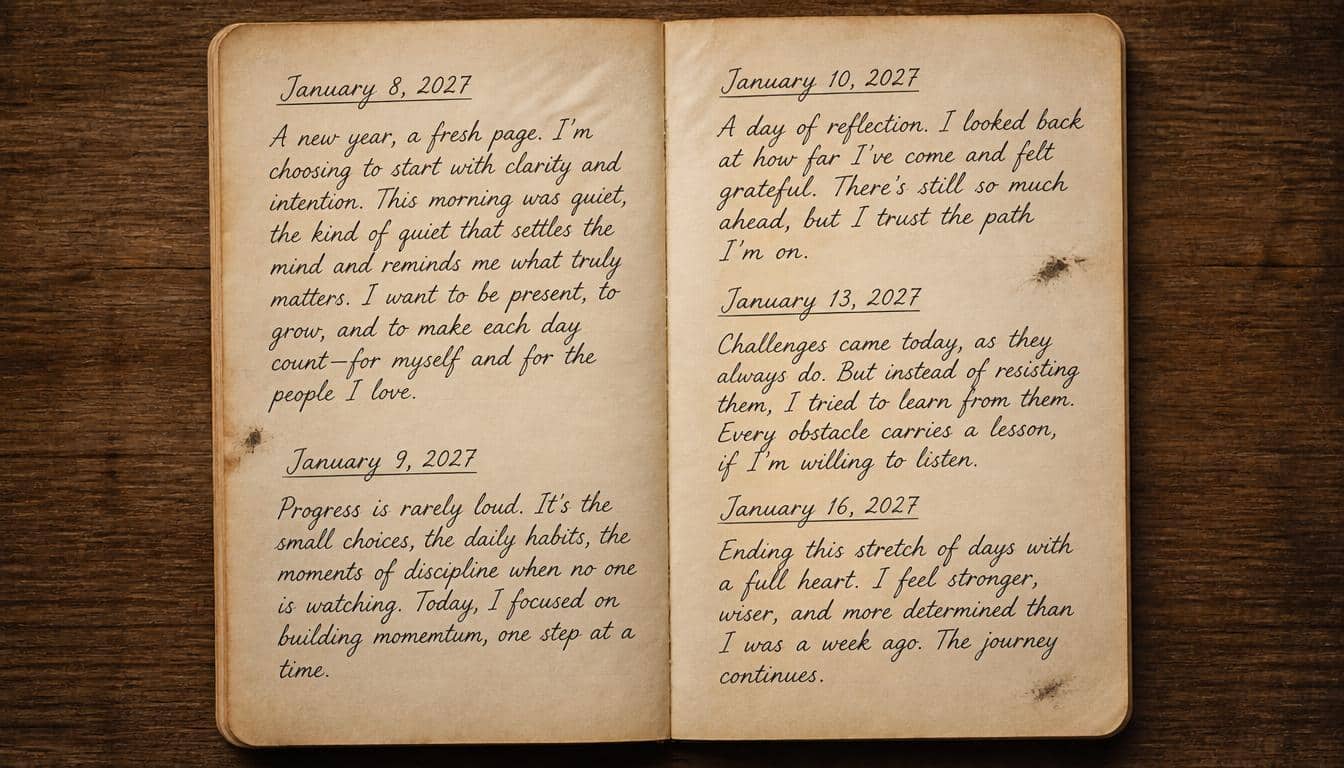 January 8, 2027
A new year, a fresh page. I'm
choosing to start with clarity and
intention. This morning was quiet,
the kind of quiet that settles the
mind and reminds me what truly
matters. I want to be present, to
grow, and to make each day
count—for myself and for the
people I love.
January 9, 2027
Progress is rarely loud. It's the
small choices, the daily habits, the
moments of discipline when no one
is watching. Today, I focused on
building momentum, one step at a
time.
January 10, 2027
A day of reflection. I looked back
at how far I've come and felt
grateful. There's still so much
ahead, but I trust the path
I'm on.
January 13, 2027
Challenges came today, as they
always do. But instead of resisting
them, I tried to learn from them.
Every obstacle carries a lesson,
if I'm willing to listen.
January 16, 2027
Ending this stretch of days with
a full heart. I feel stronger,
wiser, and more determined than
I was a week ago. The journey
continues.